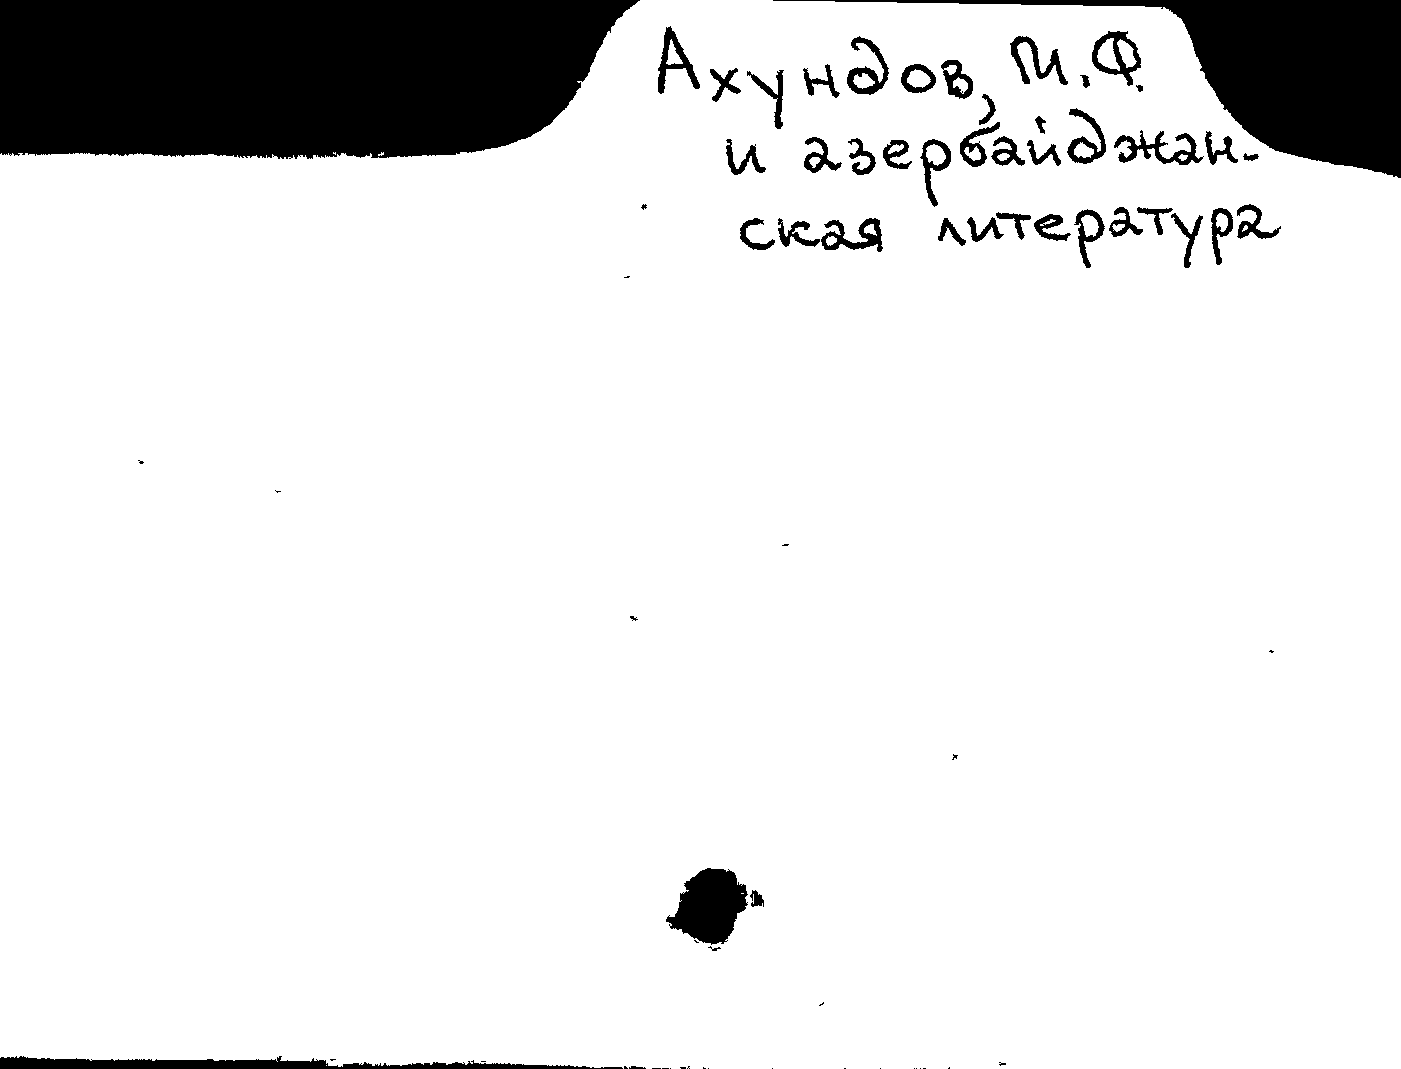 Ахундов, М.Ф.
и азербайджан-
ская литература